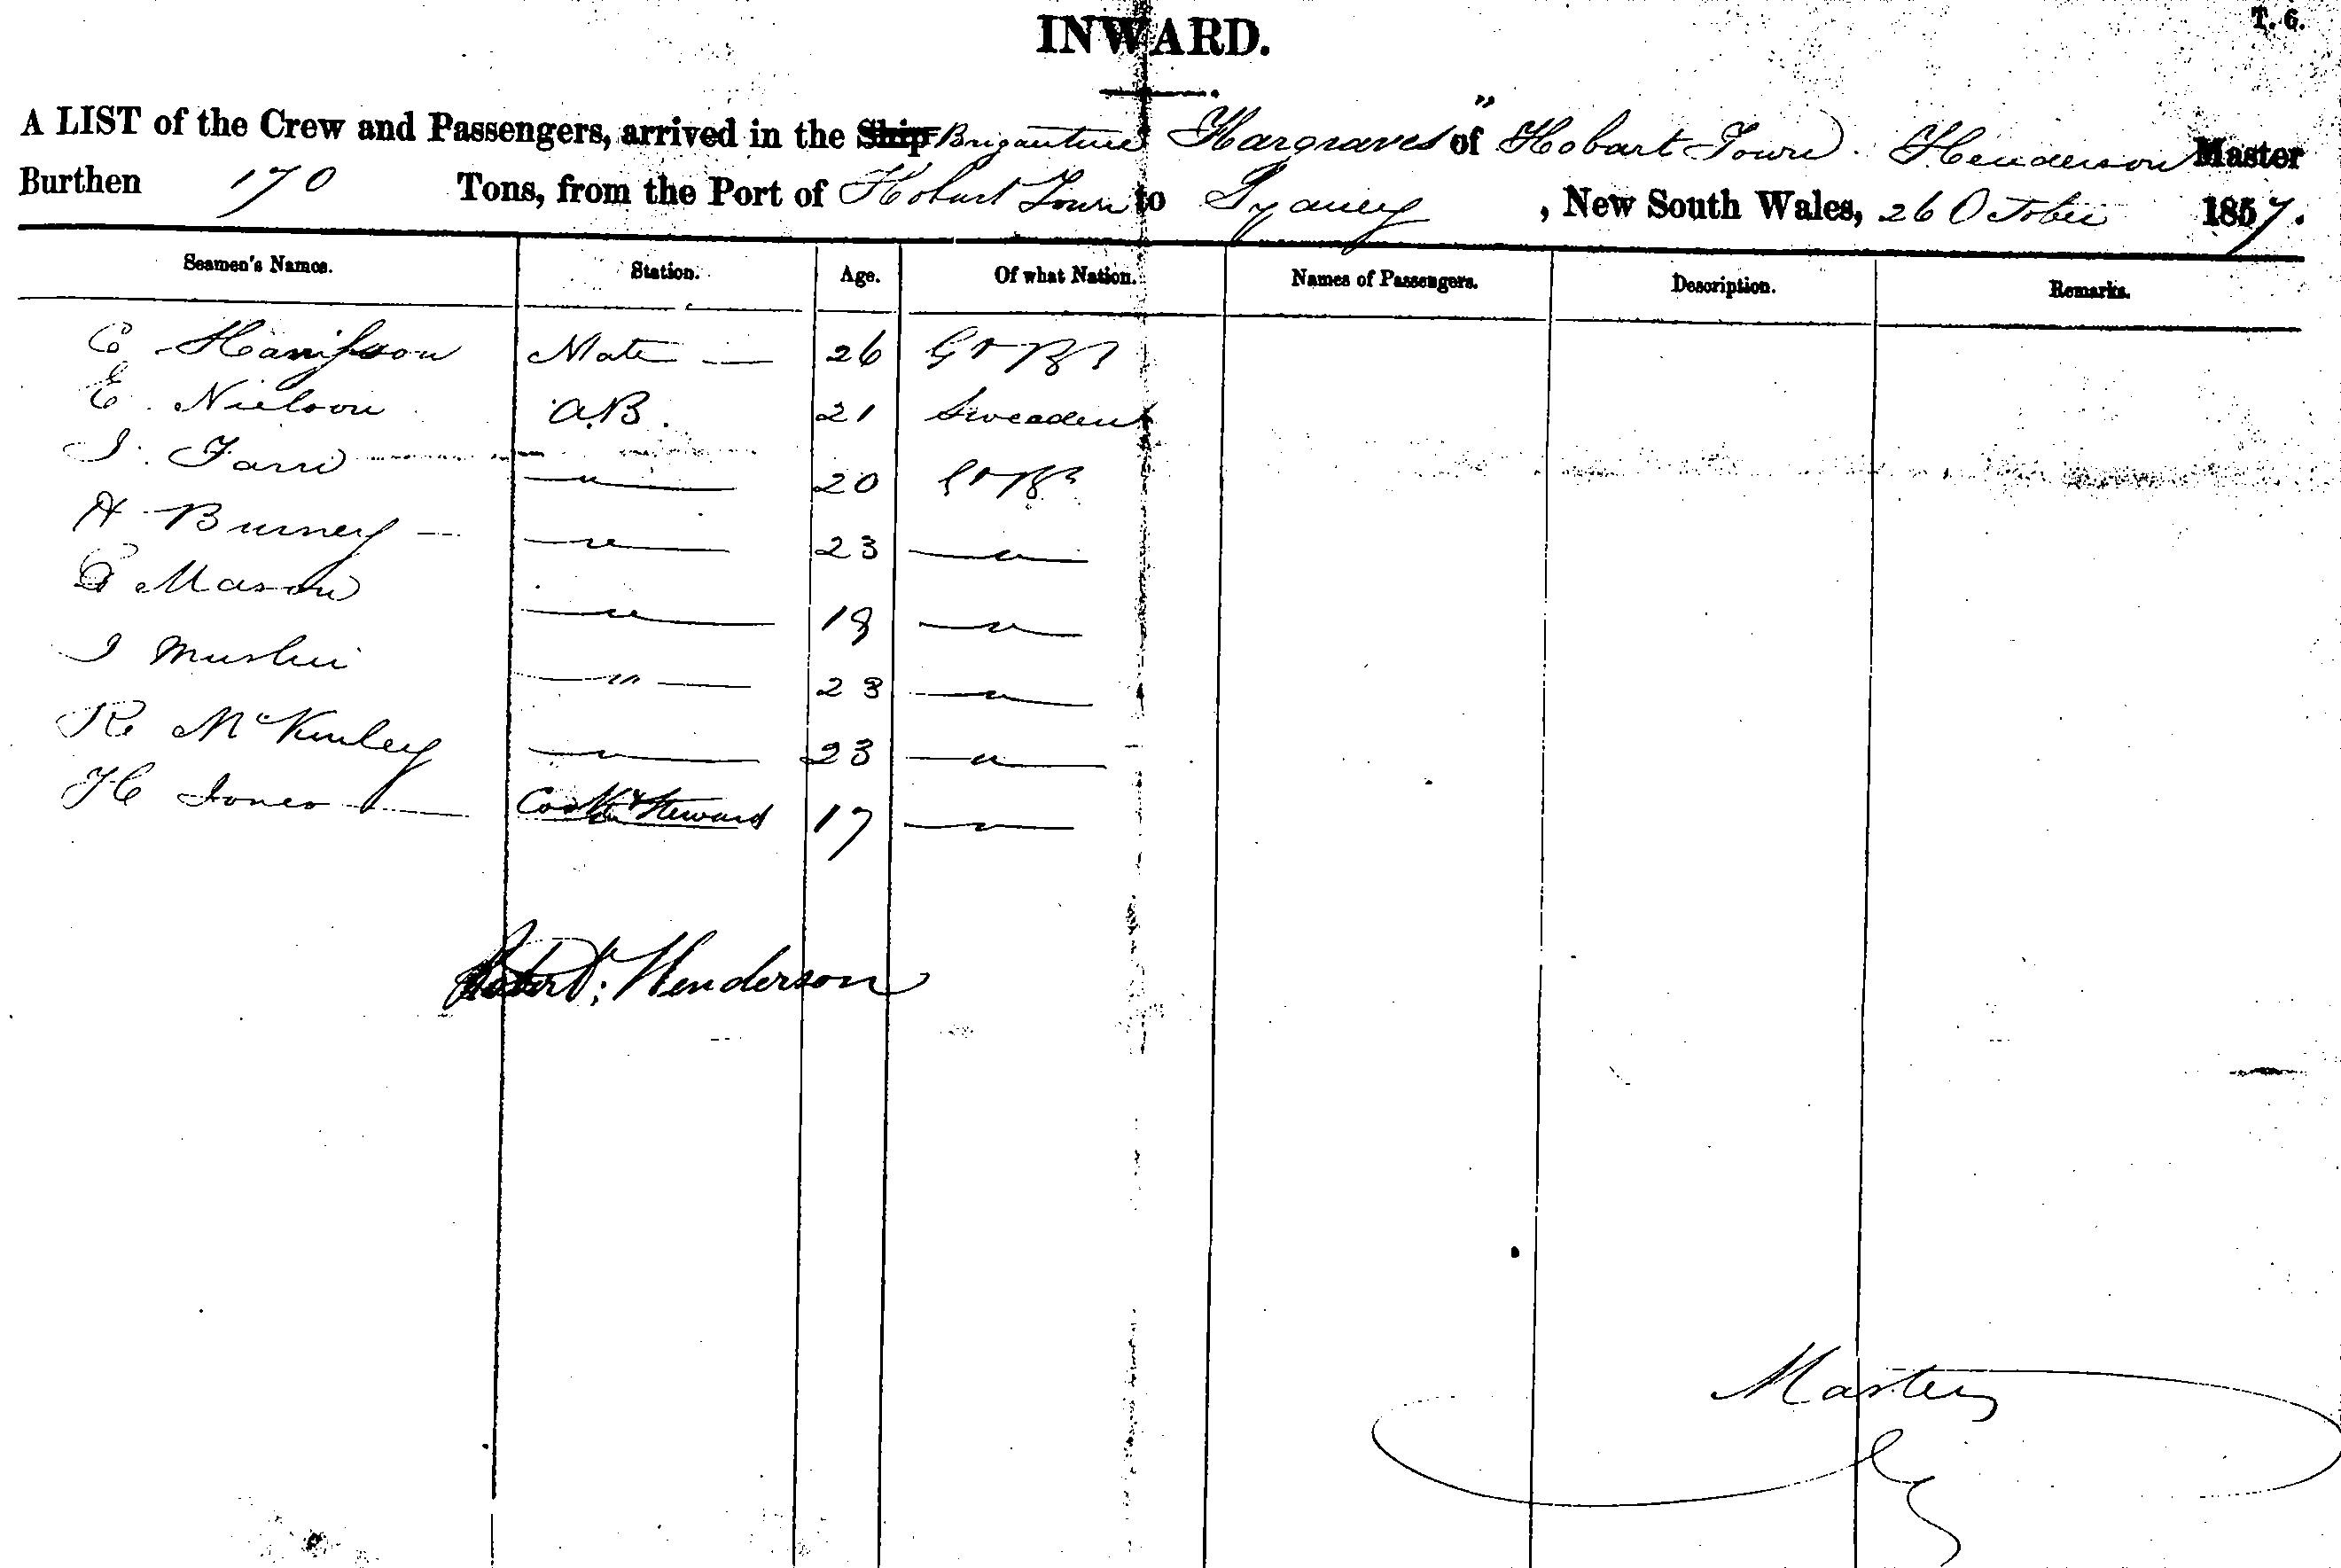 T. 6.
INWARD.
A LIST of the Crew and Passengers, arrived in the Ship Brigantine Hargraves " of Hobart Town. Henderson Master
Burthen 170 Tons, from the Port of Hobart Town to Sydney, New South Wales, 26 October 1857.
Seamen's Names. Station. Age. Of what Nation. Names of Passengers. Description. Remarks.
Mate — 26 Gt Bt
E. Nielson A.B. 21 Sweaden
20 Gt Bt
H Burney — — " — 23 — " —
Mason — " — 19 — " —
— " — 23 — " —
R McKinley — " — 23 — " —
H Jones — Cook & Steward 17 — " —
Robert Henderson
Master